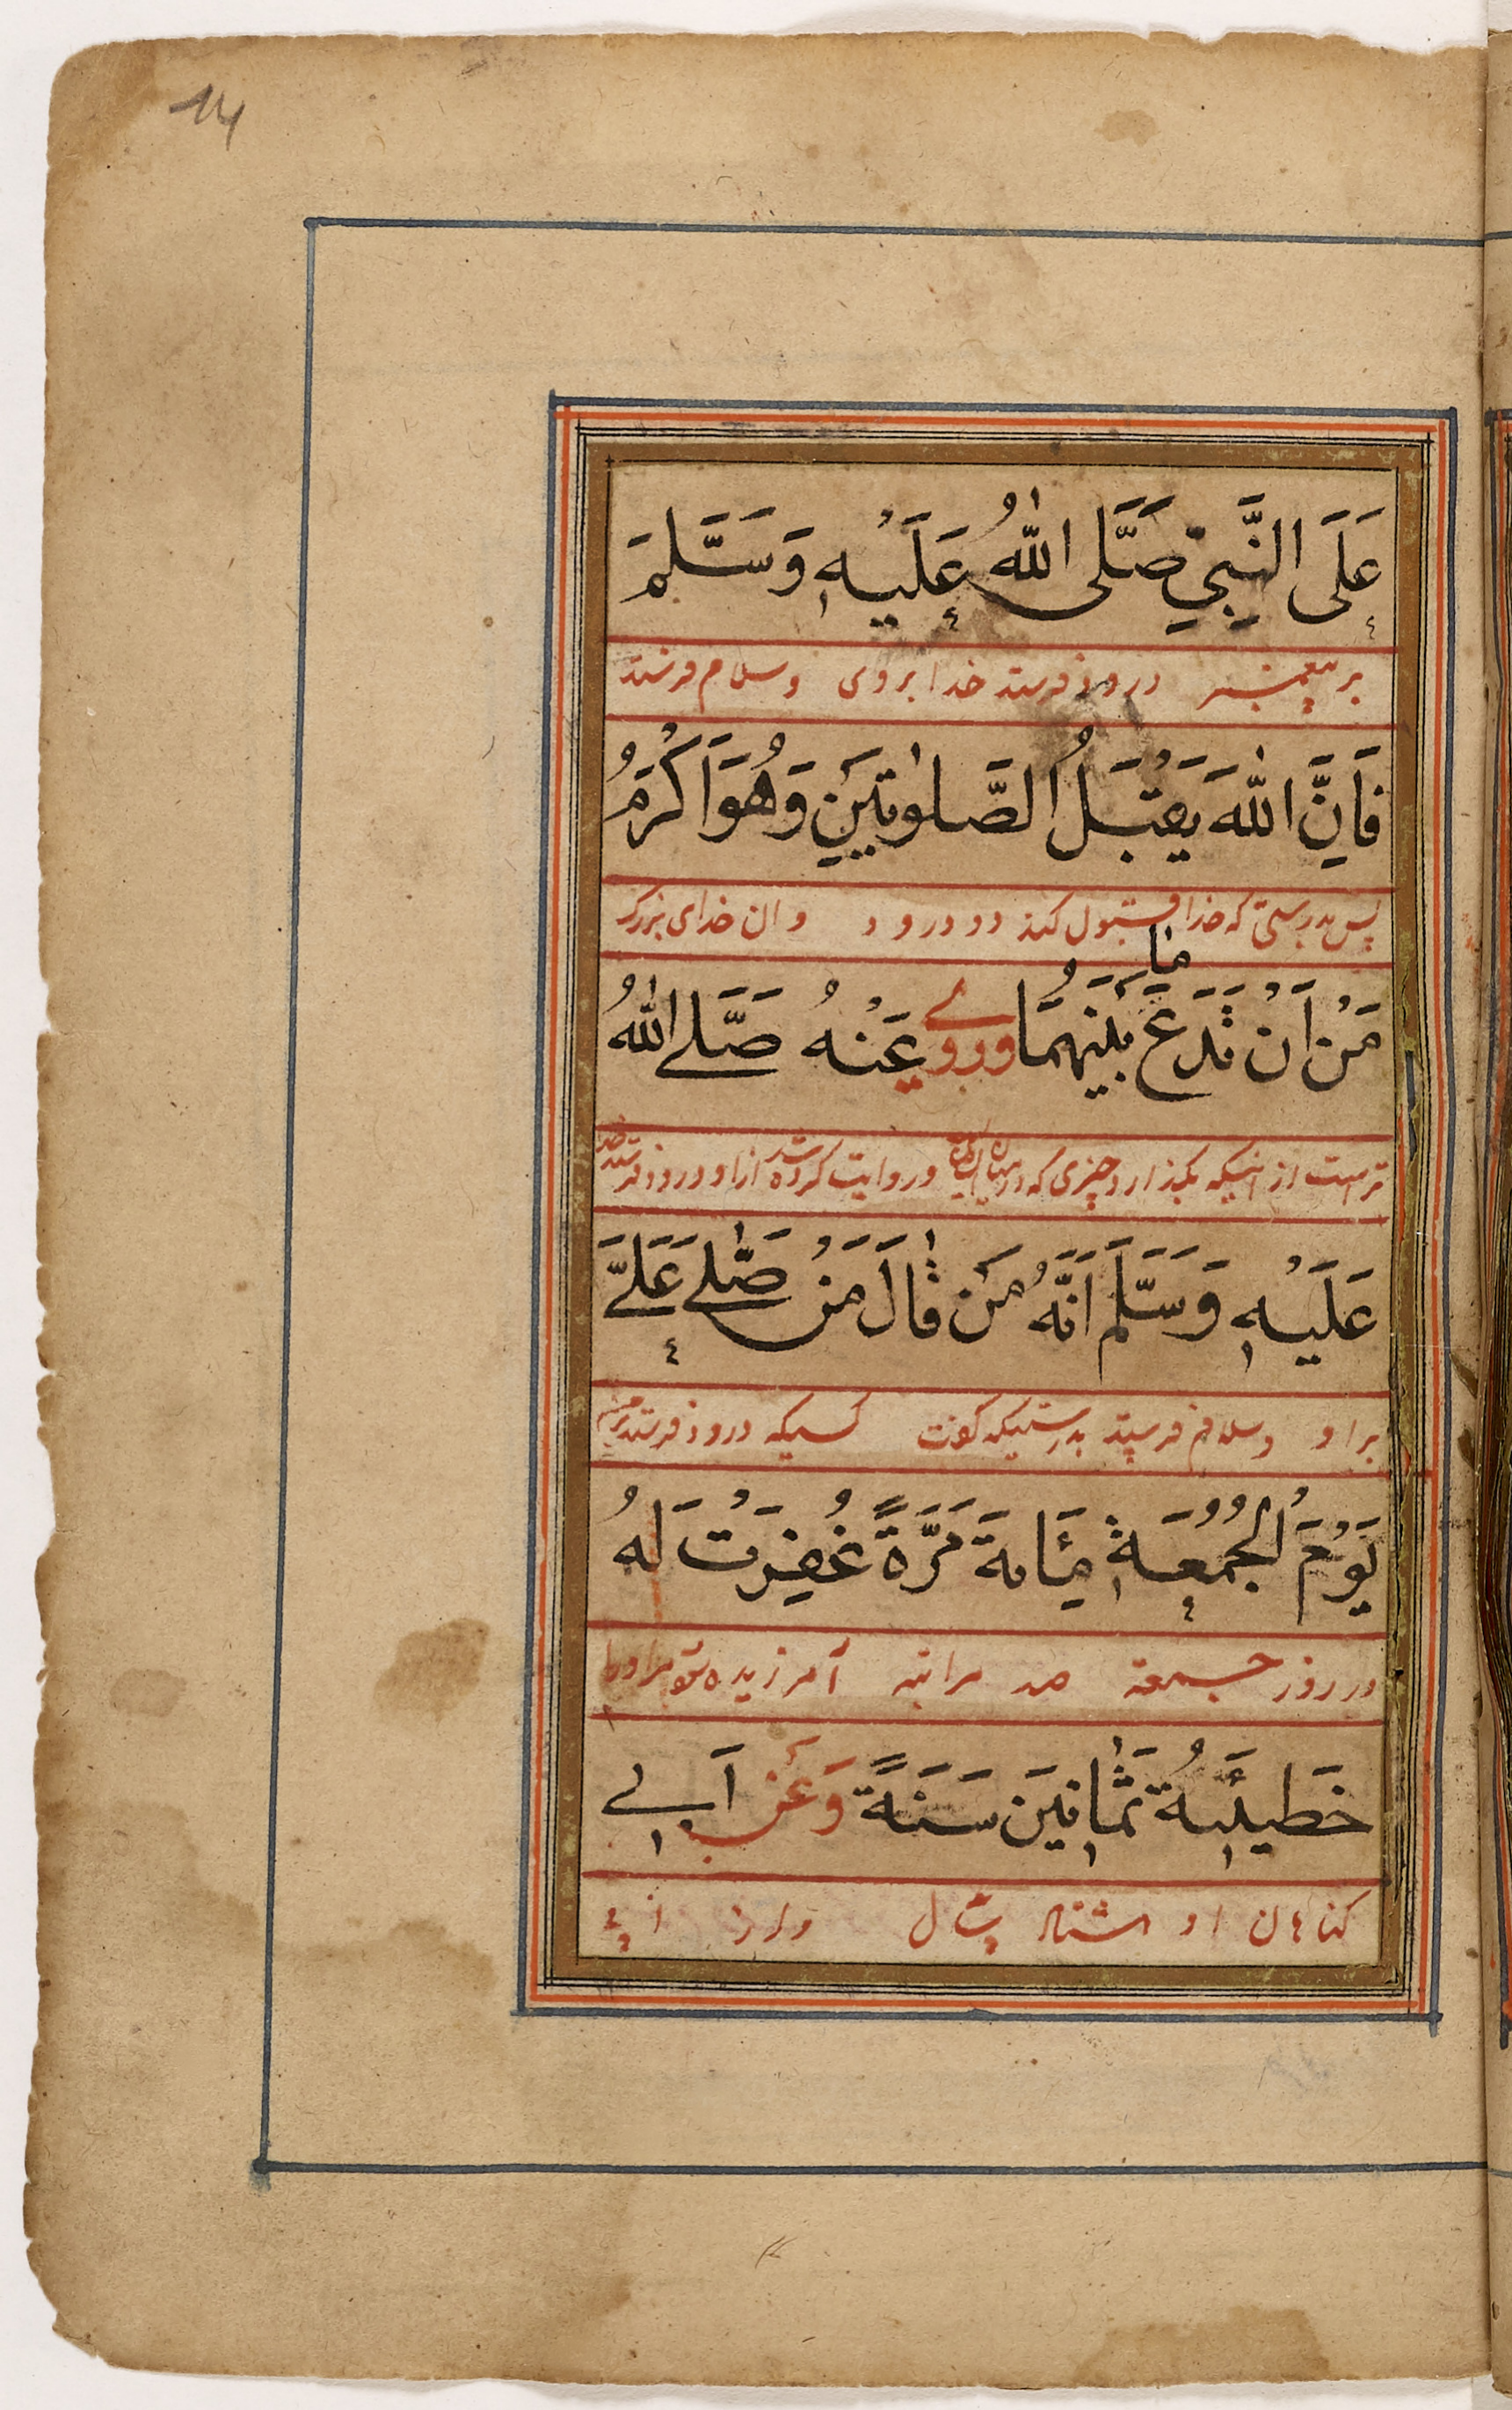 14
عَلَى النَّبِيِّ صَلَّى اللّٰهُ عَلَيْهِ وَسَلَّمَ
بر پیغمبر درود فرستد خدا بروی و سلام فرستد
فَاِنَّ اللّٰهَ يَقْبَلُ الصَّلٰوتَيْنِ وَهُوَ اَكْرَمُ
پس بدرستی که خدا قبول کند دو درود و ان خدای بزرکـ
مَا
مِنْ اَنْ يَدَعَ بَيْنَهُمَا وروی عَنْهُ صَلَّى اللّٰهُ
تر است از اینکه بکذارد چیزی که در میان و روایت کرده شد از او درود فرستد خدا
عَلَيْهِ وَسَلَّمَ اَنَّهُ مَنْ قَالَ مَنْ صَلَّى عَلَيَّ
بر او و سلام فرستد بدرستیکه کفت کسیکه درود فرستد
يَوْمَ الْجُمُعَةِ مِائَةَ مَرَّةً غُفِرَتْ لَهُ
در روز جمعه صد مراتبه آمرزیده شود مر او را
خَطِيئَةُ ثَمَانِينَ سَنَةً وَعَنْ اَبِي
کناهان او هشتاد سال و از ابی